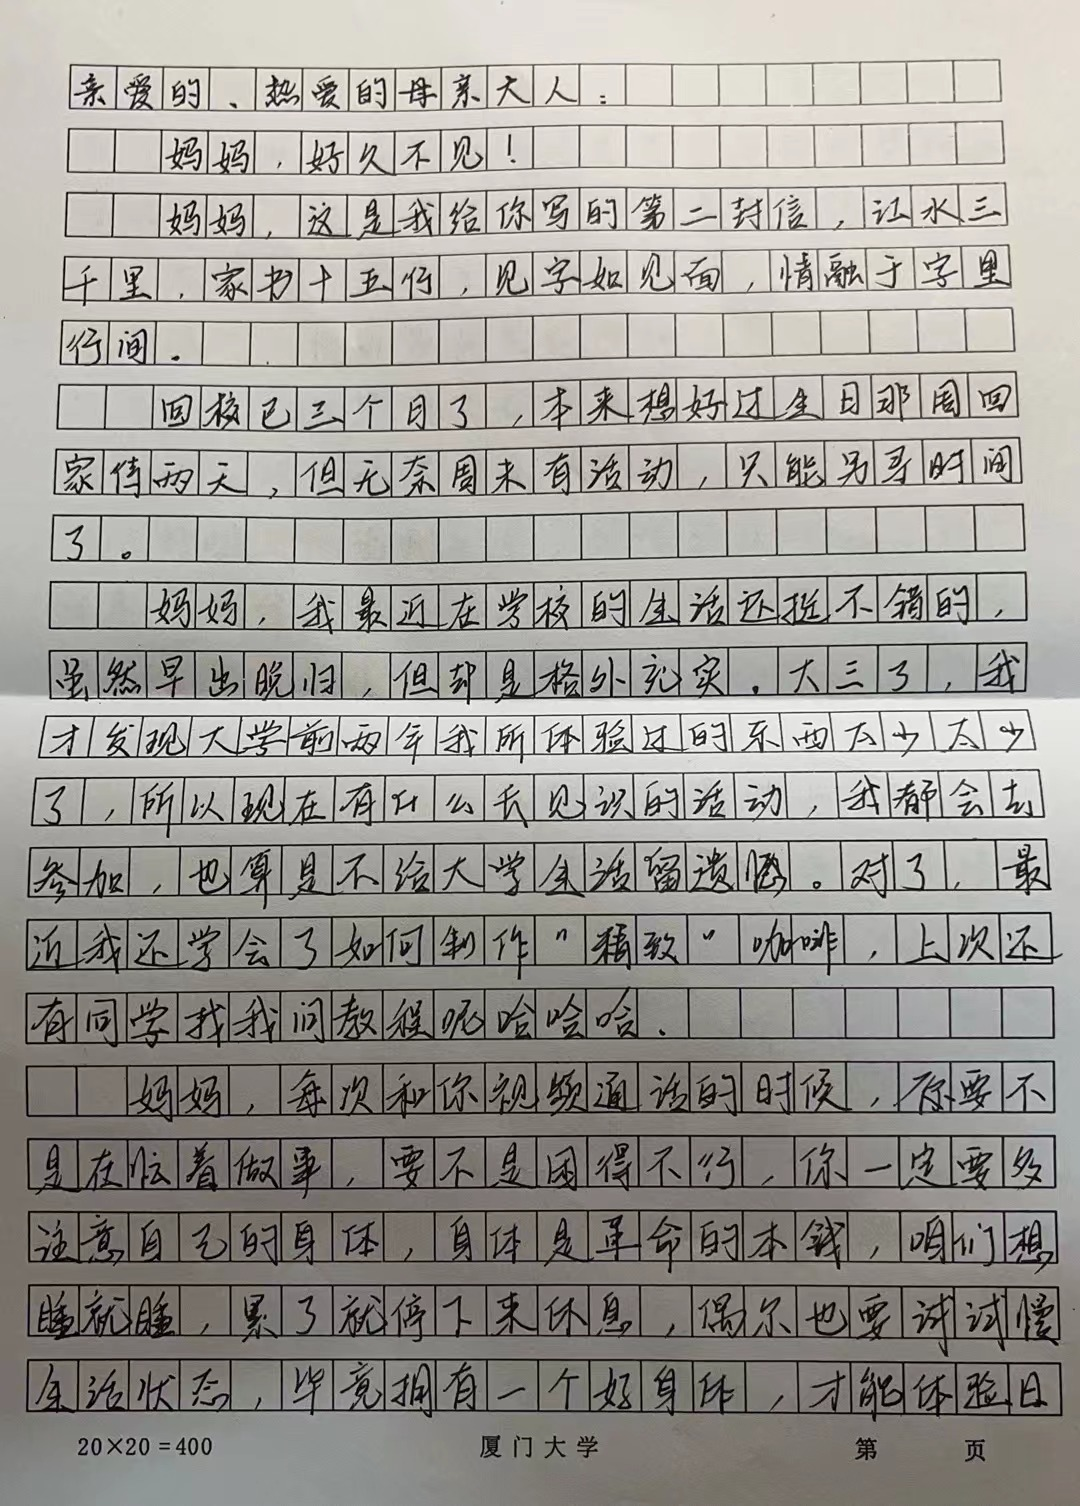 亲爱的、热爱的母亲大人：
妈妈，好久不见！
妈妈，这是我给你写的第二封信，江水三
千里，家书十五行，见字如见面，情融于字里
行间。
回校已三个月了，本来想好过生日那周回
家待两天，但无奈周末有活动，只能另寻时间
了。
妈妈，我最近在学校的生活还挺不错的，
虽然早出晚归，但却是格外充实。大三了，我
才发现大学前两年我所体验过的东西太少太少
了，所以现在有什么长见识的活动，我都会去
参加，也算是不给大学生活留遗憾。对了，最
近我还学会了如何制作"精致"咖啡，上次还
有同学找我问教程呢哈哈哈。
妈妈，每次和你视频通话的时候，你要不
是在忙着做事，要不是困得不行，你一定要多
注意自己的身体，身体是革命的本钱，咱们想
睡就睡，累了就停下来休息，偶尔也要试试慢
生活状态，毕竟拥有一个好身体，才能体验日
20×20=400 厦门大学 第 页